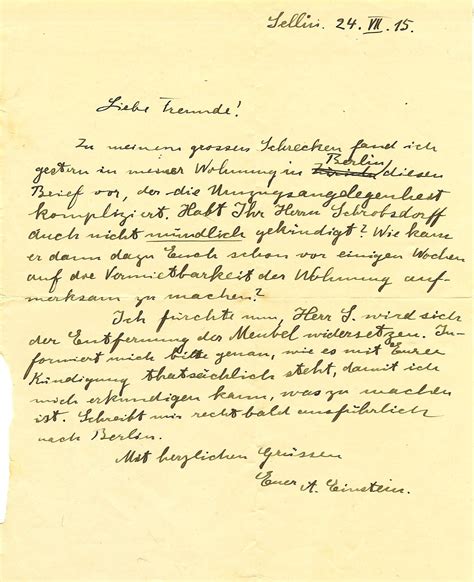 Sellin. 24. VII. 15.
Liebe Freunde!
Zu meinem grossen Schrecken fand ich
gestern in meiner Wohnung in Zürich Berlin, diesen
Brief vor, der die Umzugsangelegenheit
kompliziert. Habt Ihr Herrn Schrobsdorff
auch nicht mündlich gekündigt? Wie kam
er dann dazu Euch schon vor einigen Wochen
auf die Vermietbarkeit der Wohnung auf-
merksam zu machen?
Ich fürchte nun, Herr S. wird sich
der Entfernung der Meubel widersetzen. In-
formiert mich bitte genau, wie es mit Eurer
Kündigung thatsächlich steht, damit ich
mich erkundigen kann, was zu machen
ist. Schreibt mir recht bald ausführlich
nach Berlin.
Mit herzlichen Grüssen
Euer A. Einstein.